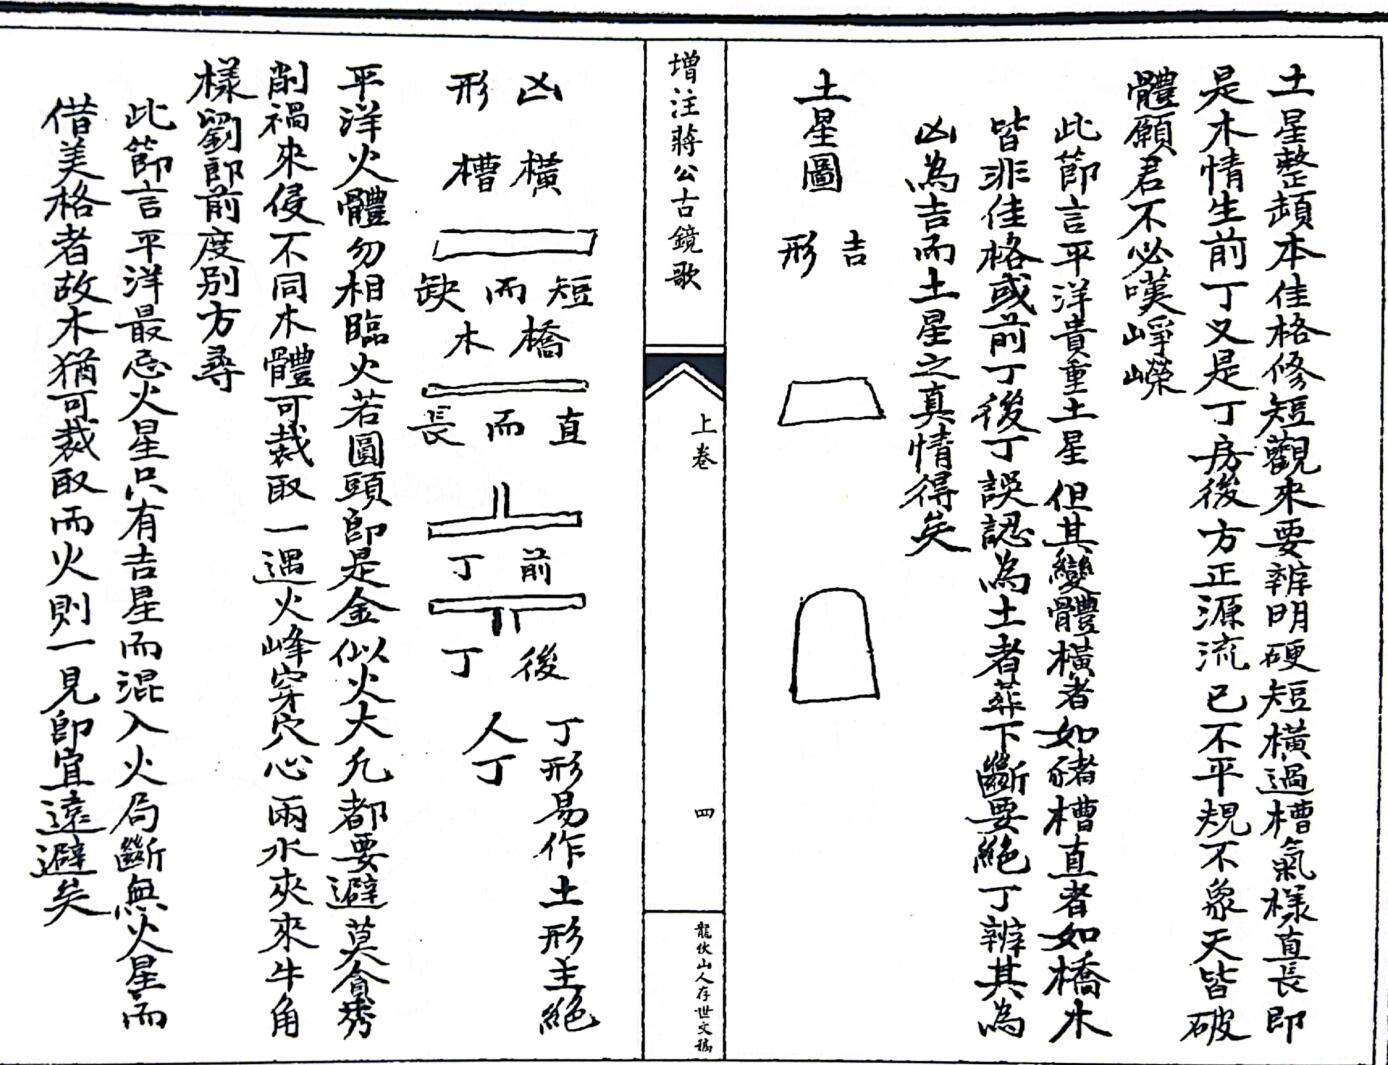 土星整頓本佳格修短觀來要辨明硬短橫過槽氣樣直長即
是木情生前丁又是丁房後方正源流已不平規不象天皆破
體願君不必嘆崢嶸
此節言平洋貴重土星但其變體橫者如豬槽直者如橋木
皆非佳格或前丁後丁誤認為土者葬下斷要絕丁辨其為
凶為吉而土星之真情得矣
土星圖
吉形
增注蔣公古鏡歌
上卷
四
龍伏山人存世文稿
凶形
橫槽
短而缺
橋木
直而長
前丁
後丁
丁形易作土形主絕
人丁
平洋火體勿相臨火若圓頭即是金似火大凡都要避莫貪秀
削禍來侵不同木體可裁取一遇火峰穿穴心兩水夾來牛角
樣劉郎前度別方尋
此節言平洋最忌火星只有吉星而混入火局斷無火星而
借美格者故木猶可裁取而火則一見即宜遠避矣